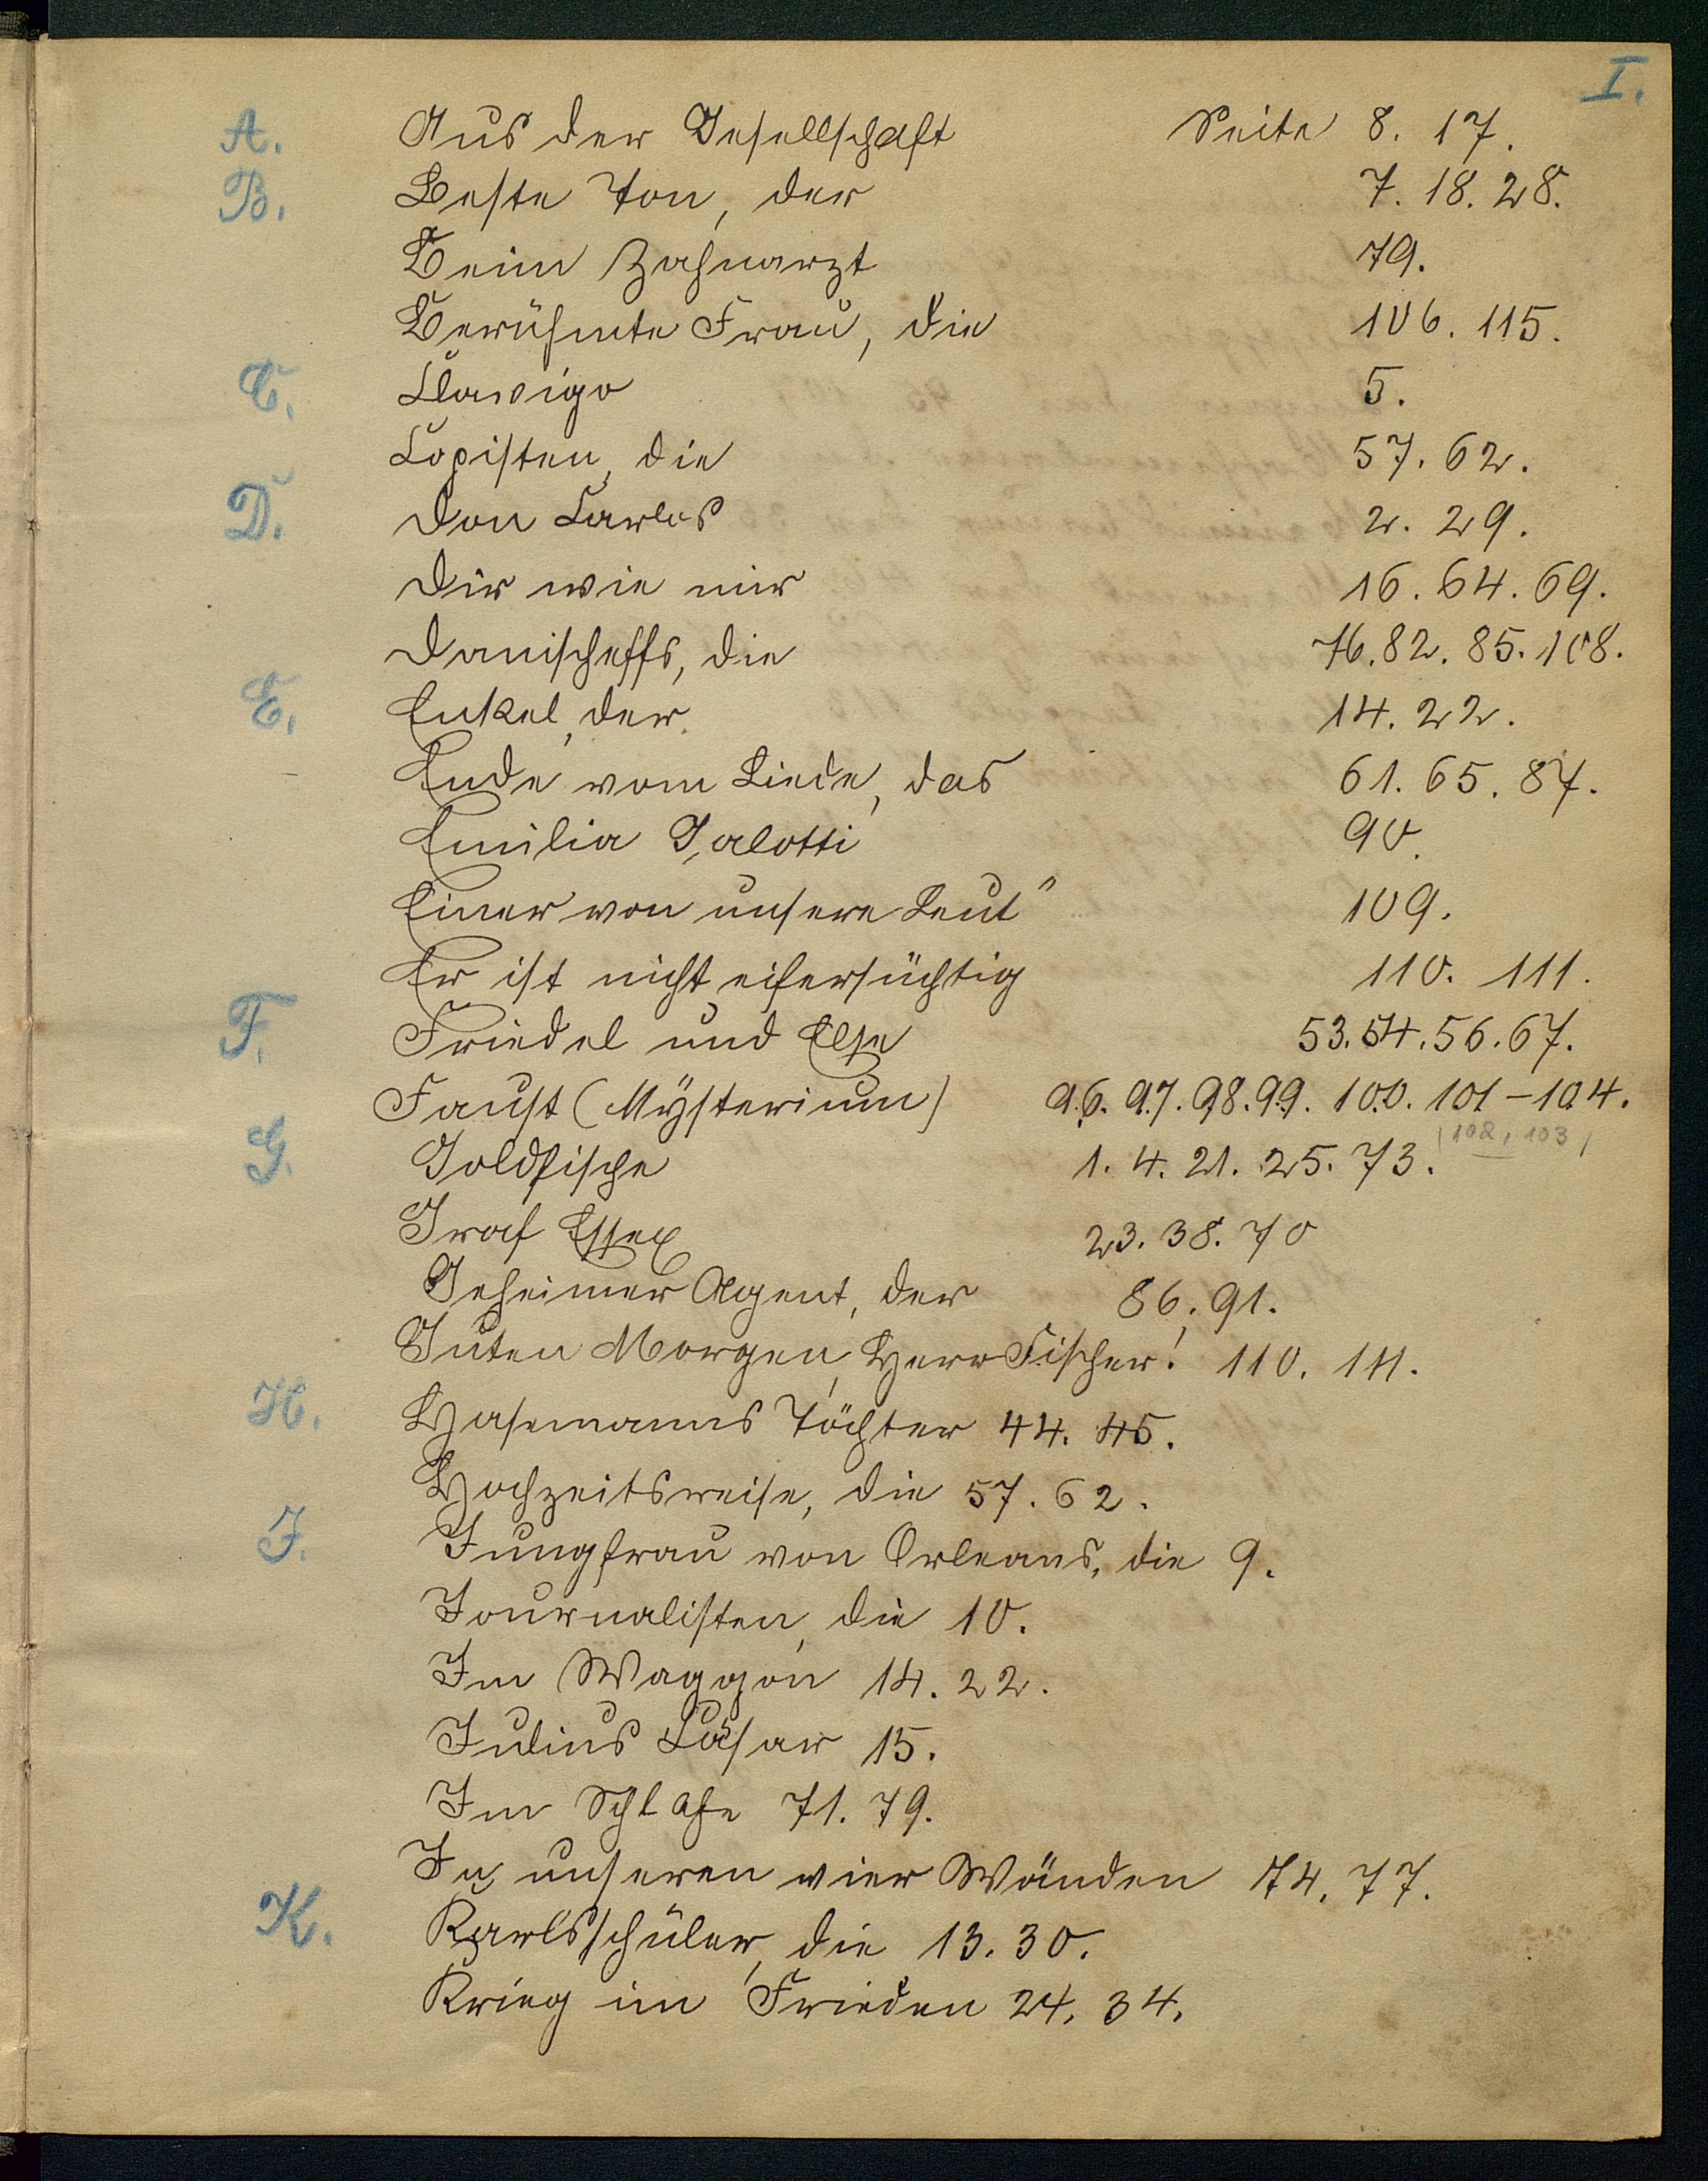 I.
A. Aus der Gesellschaft Seite 8. 17.
B. Beste Ton, der 7. 18. 28.
Beim Zahnarzt 79.
Berühmte Frau, die 106. 115.
C. Clavigo 5.
Copisten, die 57. 62.
D. Don Carlos 2. 29.
Dir wie mir 16. 64. 69.
Danischeffs, die 76. 82. 85. 108.
E. Enkel, der 14. 22.
Ende vom Liede, das 61. 65. 87.
Emilia Galotti 90.
Einer von unsere Leut" 109.
Er ist nicht eifersüchtig 110. 111.
F. Friedel und Else 53. 54. 56. 67.
Faust (Mysterium) 96. 97. 98. 99. 100. 101-104.
(102, 103)
G. Goldfische 1. 4. 21. 25. 73.
Graf Essex 23. 38. 70
Geheimer Agent, der 86. 91.
Guten Morgen, Herr Fischer! 110. 111.
H. Hasemanns Töchter 44. 45.
Hochzeitsreise, die 57. 62.
J. Jungfrau von Orleans, die 9.
Journalisten, die 10.
Im Waggon 14. 22.
Julius Cäsar 15.
Im Schlafe 71. 79.
In unseren vier Wänden 74. 77.
K. Karlsschüler, die 13. 30.
Krieg im Frieden 24. 34.